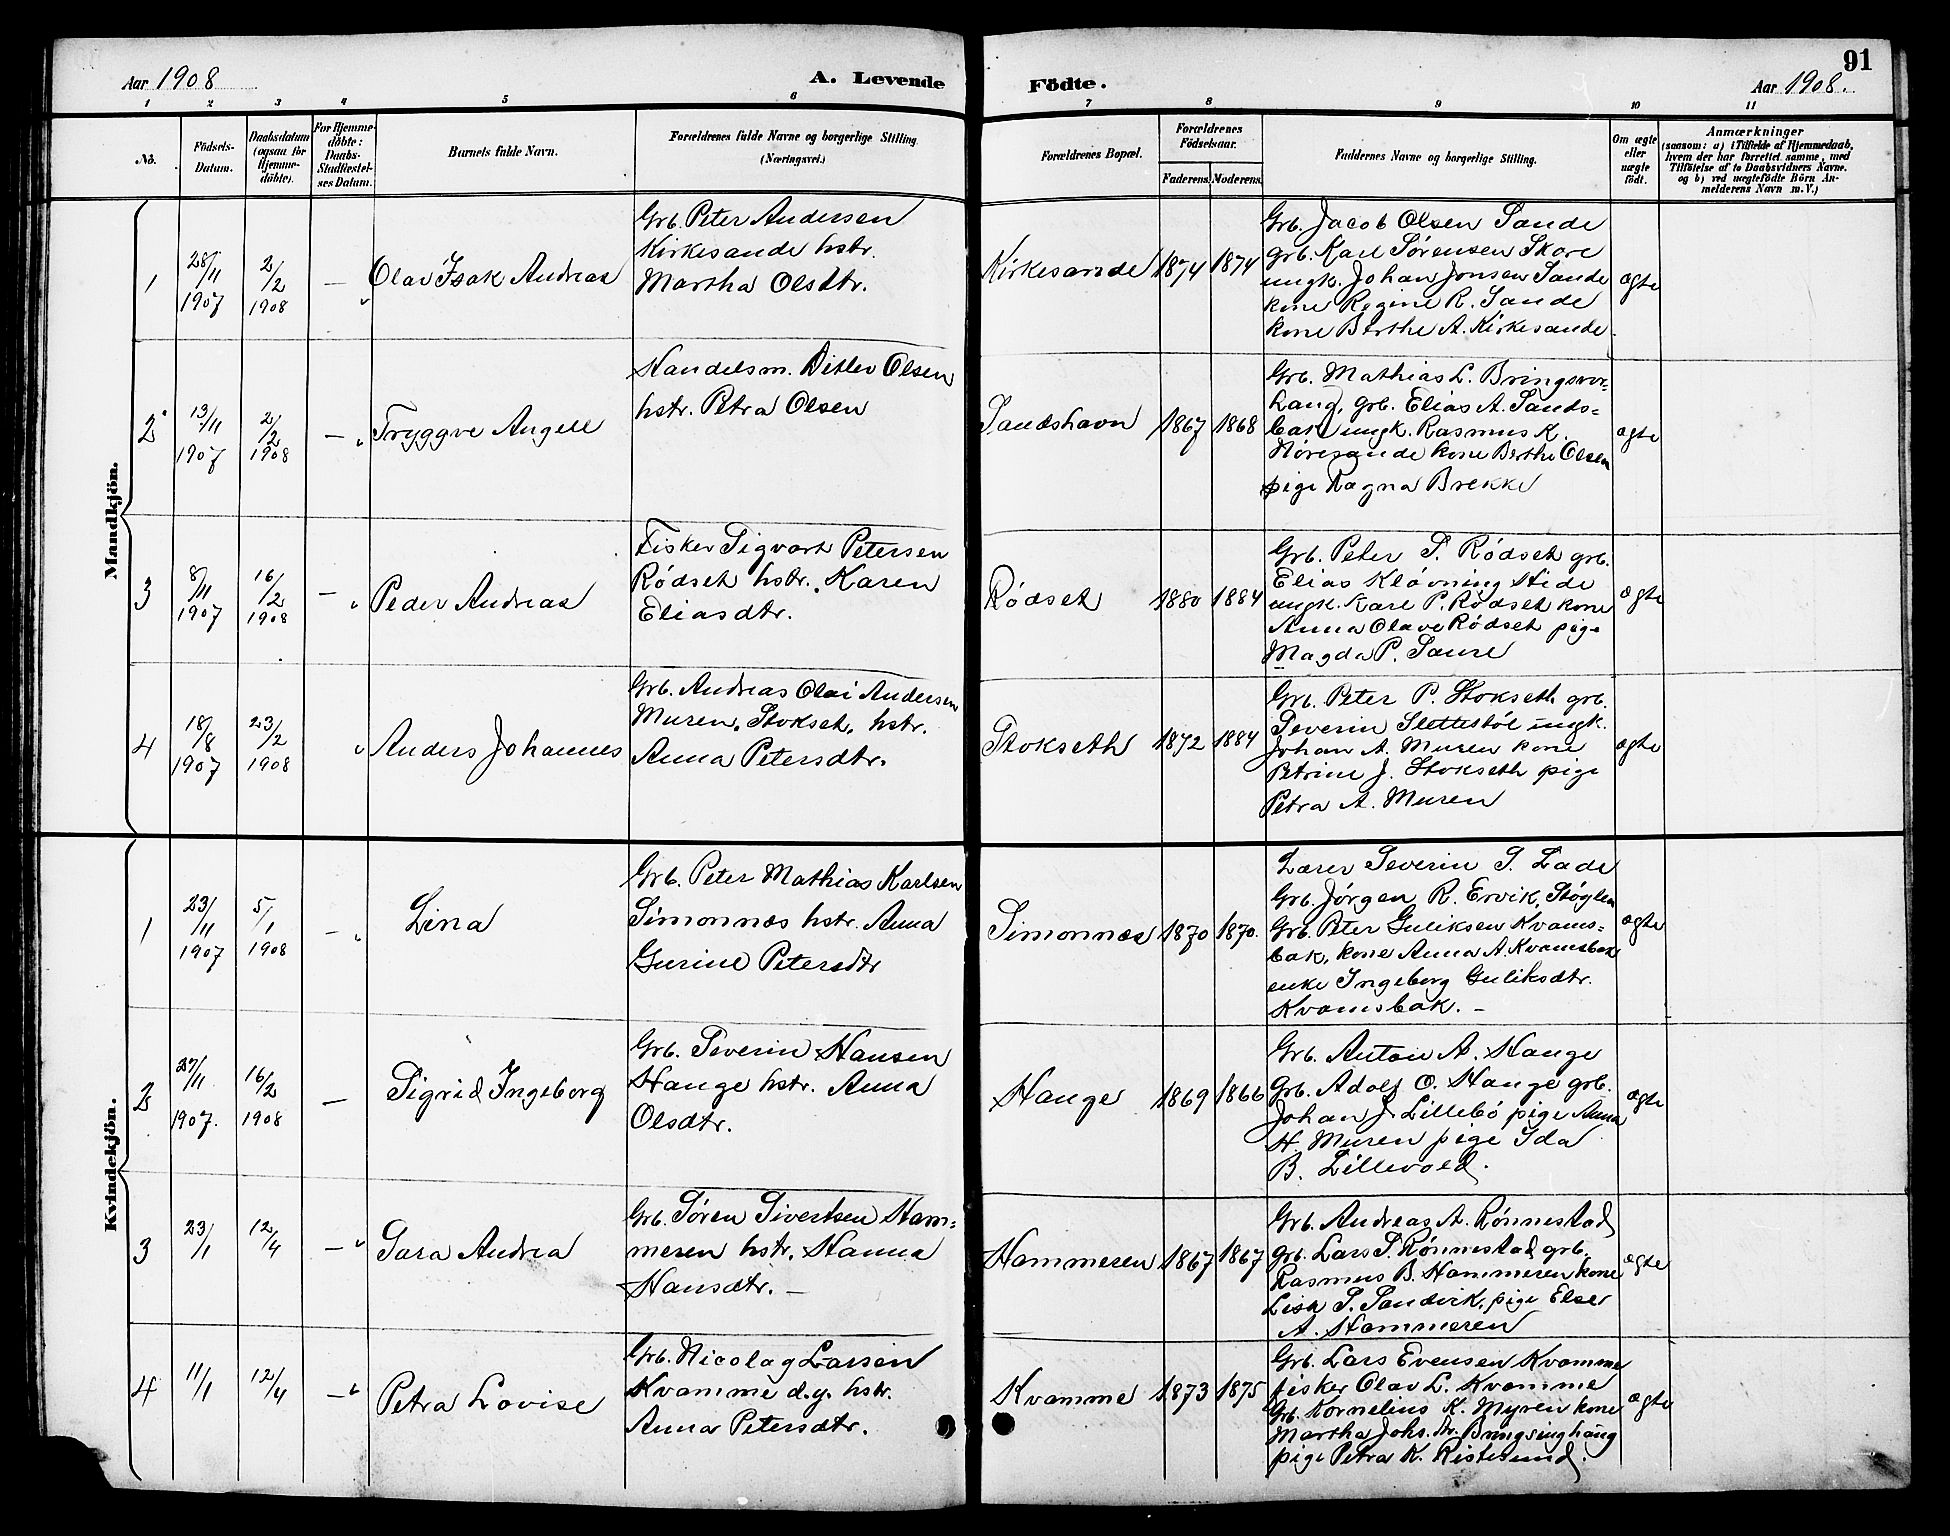 91
Aar 1908
A. Levende
Födte.
Aar 1908.
1 2 3 4 5 6 7 8 9 10 11
No.
Födsels-
Datum.
Daabsdatum
(ogsaa for
Hjemme-
döbte).
For Hjemme-
döbte:
Daabs-
Stadfæstel-
ses Datum.
Barnets fulde Navn.
Forældrenes fulde Navne og borgerlige Stilling.
(Næringsvei.)
Forældrenes Bopæl.
Forældrenes
Födselsaar.
Faderens. Moderens.
Faddernes Navne og borgerlige Stilling.
Om ægte
eller
uægte
födt.
Anmærkninger
(saasom: a) i Tilfælde af Hjemmedaab,
hvem der har forrettet samme, med
Tilföielse af to Daabsvidners Navne.
og b) ved uægtefödte Börn An-
melderens Navn m. V.)
Mandkjön.
1
28/11
1907
2/2
1908
—
Olav Isak Andreas
Grb. Peter Andersen
Kirkesande hstr.
Martha Olsdtr.
Kirkesande
1874
1874
Grb. Jacob Olsen Sande
grb. Karl Sørensen Skare
ungk. Johan Jonsen Sande
kone Regine R. Sande
kone Berthe A. Kirkesande
ægte
2
13/11
1907
2/2
1908
—
Tryggve Angell
Handelsm. Ditlev Olsen
hstr. Petra Olsen
Sandshavn
1867
1868
Grb. Mathias L. Bringsvor-
hang, grb. Elias A. Sands-
bak ungk. Rasmus K.
Nøresande kone Berthe Olsen
pige Ragna Brekke
ægte
3
8/11
1907
16/2
1908
—
Peder Andreas
Fisker Sigvart Petersen
Rødset hstr. Karen
Eliasdtr.
Rødset
1880
1884
Grb. Peter S. Rødset grb.
Elias Kløvning Hide
ungk. Karl P. Rødset kone
Anna Olave Rødset pige
Magda P. Saure
ægte
4
18/8
1907
23/2
1908
Anders Johannes
Grb. Andreas Olai Andersen
Muren, Stokset, hstr.
Anna Petersdtr.
Stokseth
1872
1884
Grb. Peter P. Stokseth grb.
Severin Slettestøl ungk.
Johan A. Muren kone
Petrine J. Stokseth pige
Petra A. Muren
ægte
Kvindekjön.
1
23/11
1907
5/1
1908
—
Lina
Grb. Peter Mathias Karlsen
Simonnæs hstr. Anna
Gurine Petersdtr
Simonnæs
1870
1870.
Lærer Severin S. Lade
Grb. Jørgen R. Ervik,
Grb. Peter Guliksen Kvams-
bak, kone Anna A. Kvamsbak
enke Ingeborg Guliksdtr.
Kvamsbak. —
ægte
2
27/11
1907.
16/2
1908
—
Sigrid Ingeborg
Grb. Severin Hansen
Hauge hstr. Anna
Olsdtr.
Hauge
1869
1866
Grb. Anton A. Hauge
Grb. Adolf O. Hauge grb.
Johan J. Lillebø pige Anna
H. Muren pige Ida
B. Lillevold.
ægte
3
23/1
12/4
—
Sara Andrea
Grb. Søren Sivertsen Ham-
meren hstr. Hanna
Hansdtr. —
Hammeren
1867
1867
Grb. Andreas A. Rønnestad
grb. Lars S. Rønnestad grb.
Rasmus B. Hammeren kone
Lisa S. Sandvik, pige Else
A. Hammeren
ægte
4
11/1
12/4
—
Petra Lovise
Grb. Nicolay Larsen
Kvamme d.y. hstr.
Anna Petersdtr.
Kvamme
1873
1875
Grb. Lars Evensen Kvamme
fisker Olav L. Kvamme
Grb. Kornelius K. Myren kone
Martha Johs. dr. Bringsinghaug
pige Petra K. Ristesund.
ægte